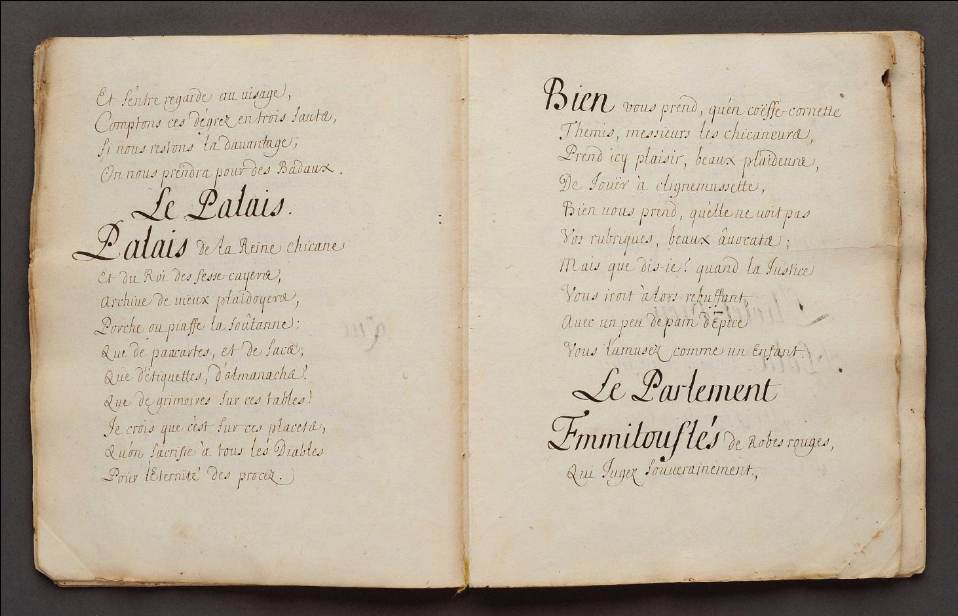 Et s'entre regarde au uisage,
Comptons ces dégrez en trois sauts,
Si nous restons là dauantage,
On nous prendra pour des Badaux.
Le Palais.
Palais de la Reine chicane
Et du Roi des fesse cayers,
Archive de uieux plaidoyers,
Porche ou piaffe la soûtanne;
Que de pancartes, et de sacs,
Que d'étiquettes, d'almanachs!
Que de grimoires sur ces tables!
Je crois que c'est sur ces placets,
Qu'on sacrifie à tous les Diables
Pour l'Eternité des procez.
Bien vous prend, qu'en coëffe-cornette
Themis, messieurs les chicaneurs,
Prend icy plaisir, beaux plaideurs,
De Jouër à clignemussette,
Bien vous prend, qu'elle ne voit pas
Vos rubriques, beaux avocats;
Mais que dis-ie! quand la Justice
Vous iroit à lors rebuffant
Avec un peu de pain d'Epice
Vous l'amusez comme un Enfant.
Le Parlement
Emmitouflés de Robes rouges,
Qui Jugez souverainement,